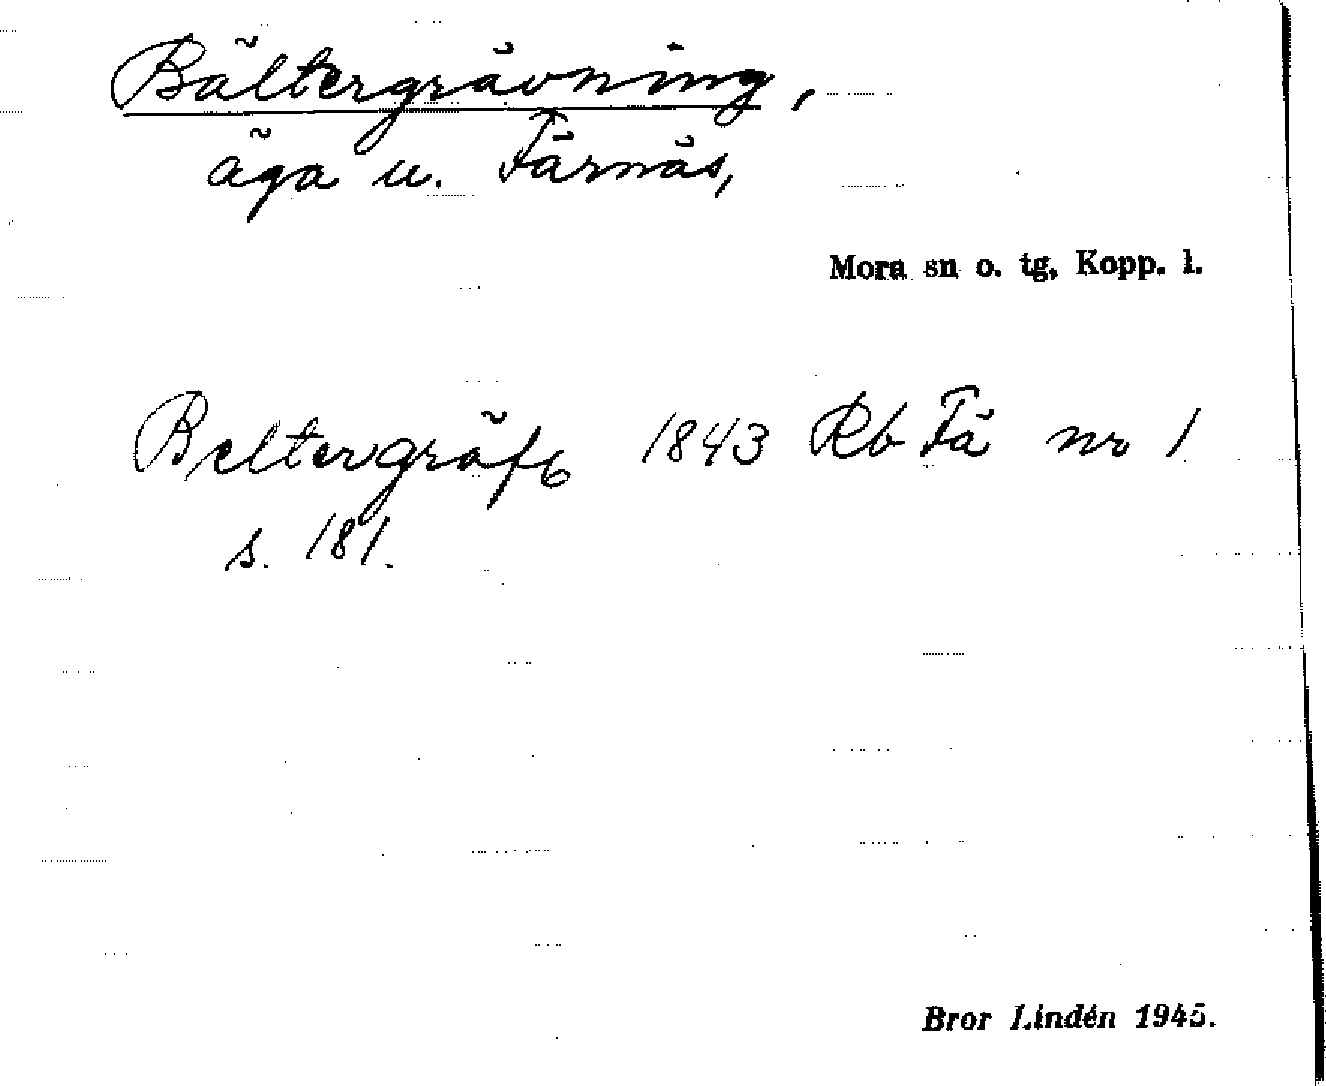 Bältergrävning,
äga u. Färnäs,
Mora sn o. tg, Kopp. l.
Beltergräfn 1843 Rb Fä nr 1
s. 181.
Bror Lindén 1945.